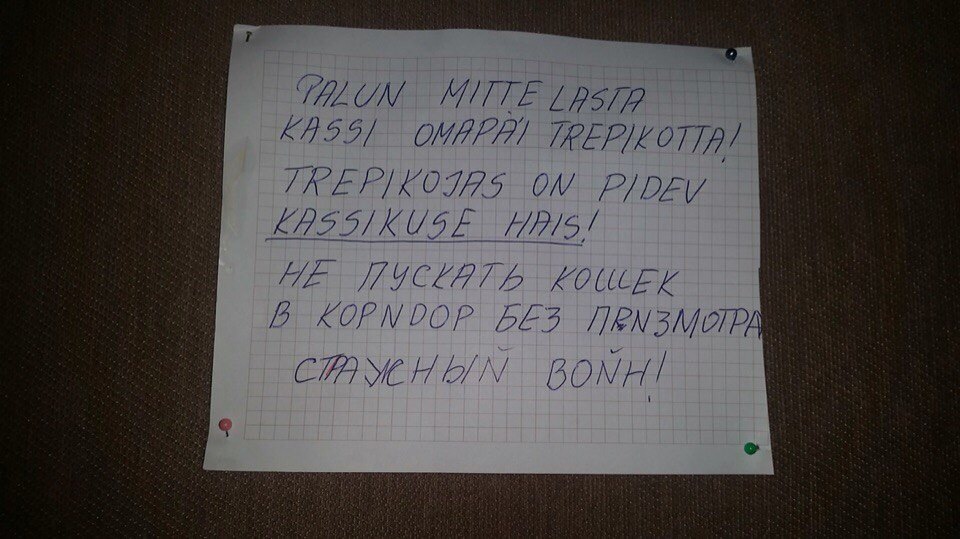 PALUN MITTE LASTA
KASSI OMAPÄI TREPIKOTTA!
TREPIKOJAS ON PIDEV
KASSIKUSE HAIS!
НЕ ПУСКАТЬ КОШЕК
В КОРNДОР БЕЗ ПRNЗМОТРА
СТРАЖНЫЙ ВОЙН!